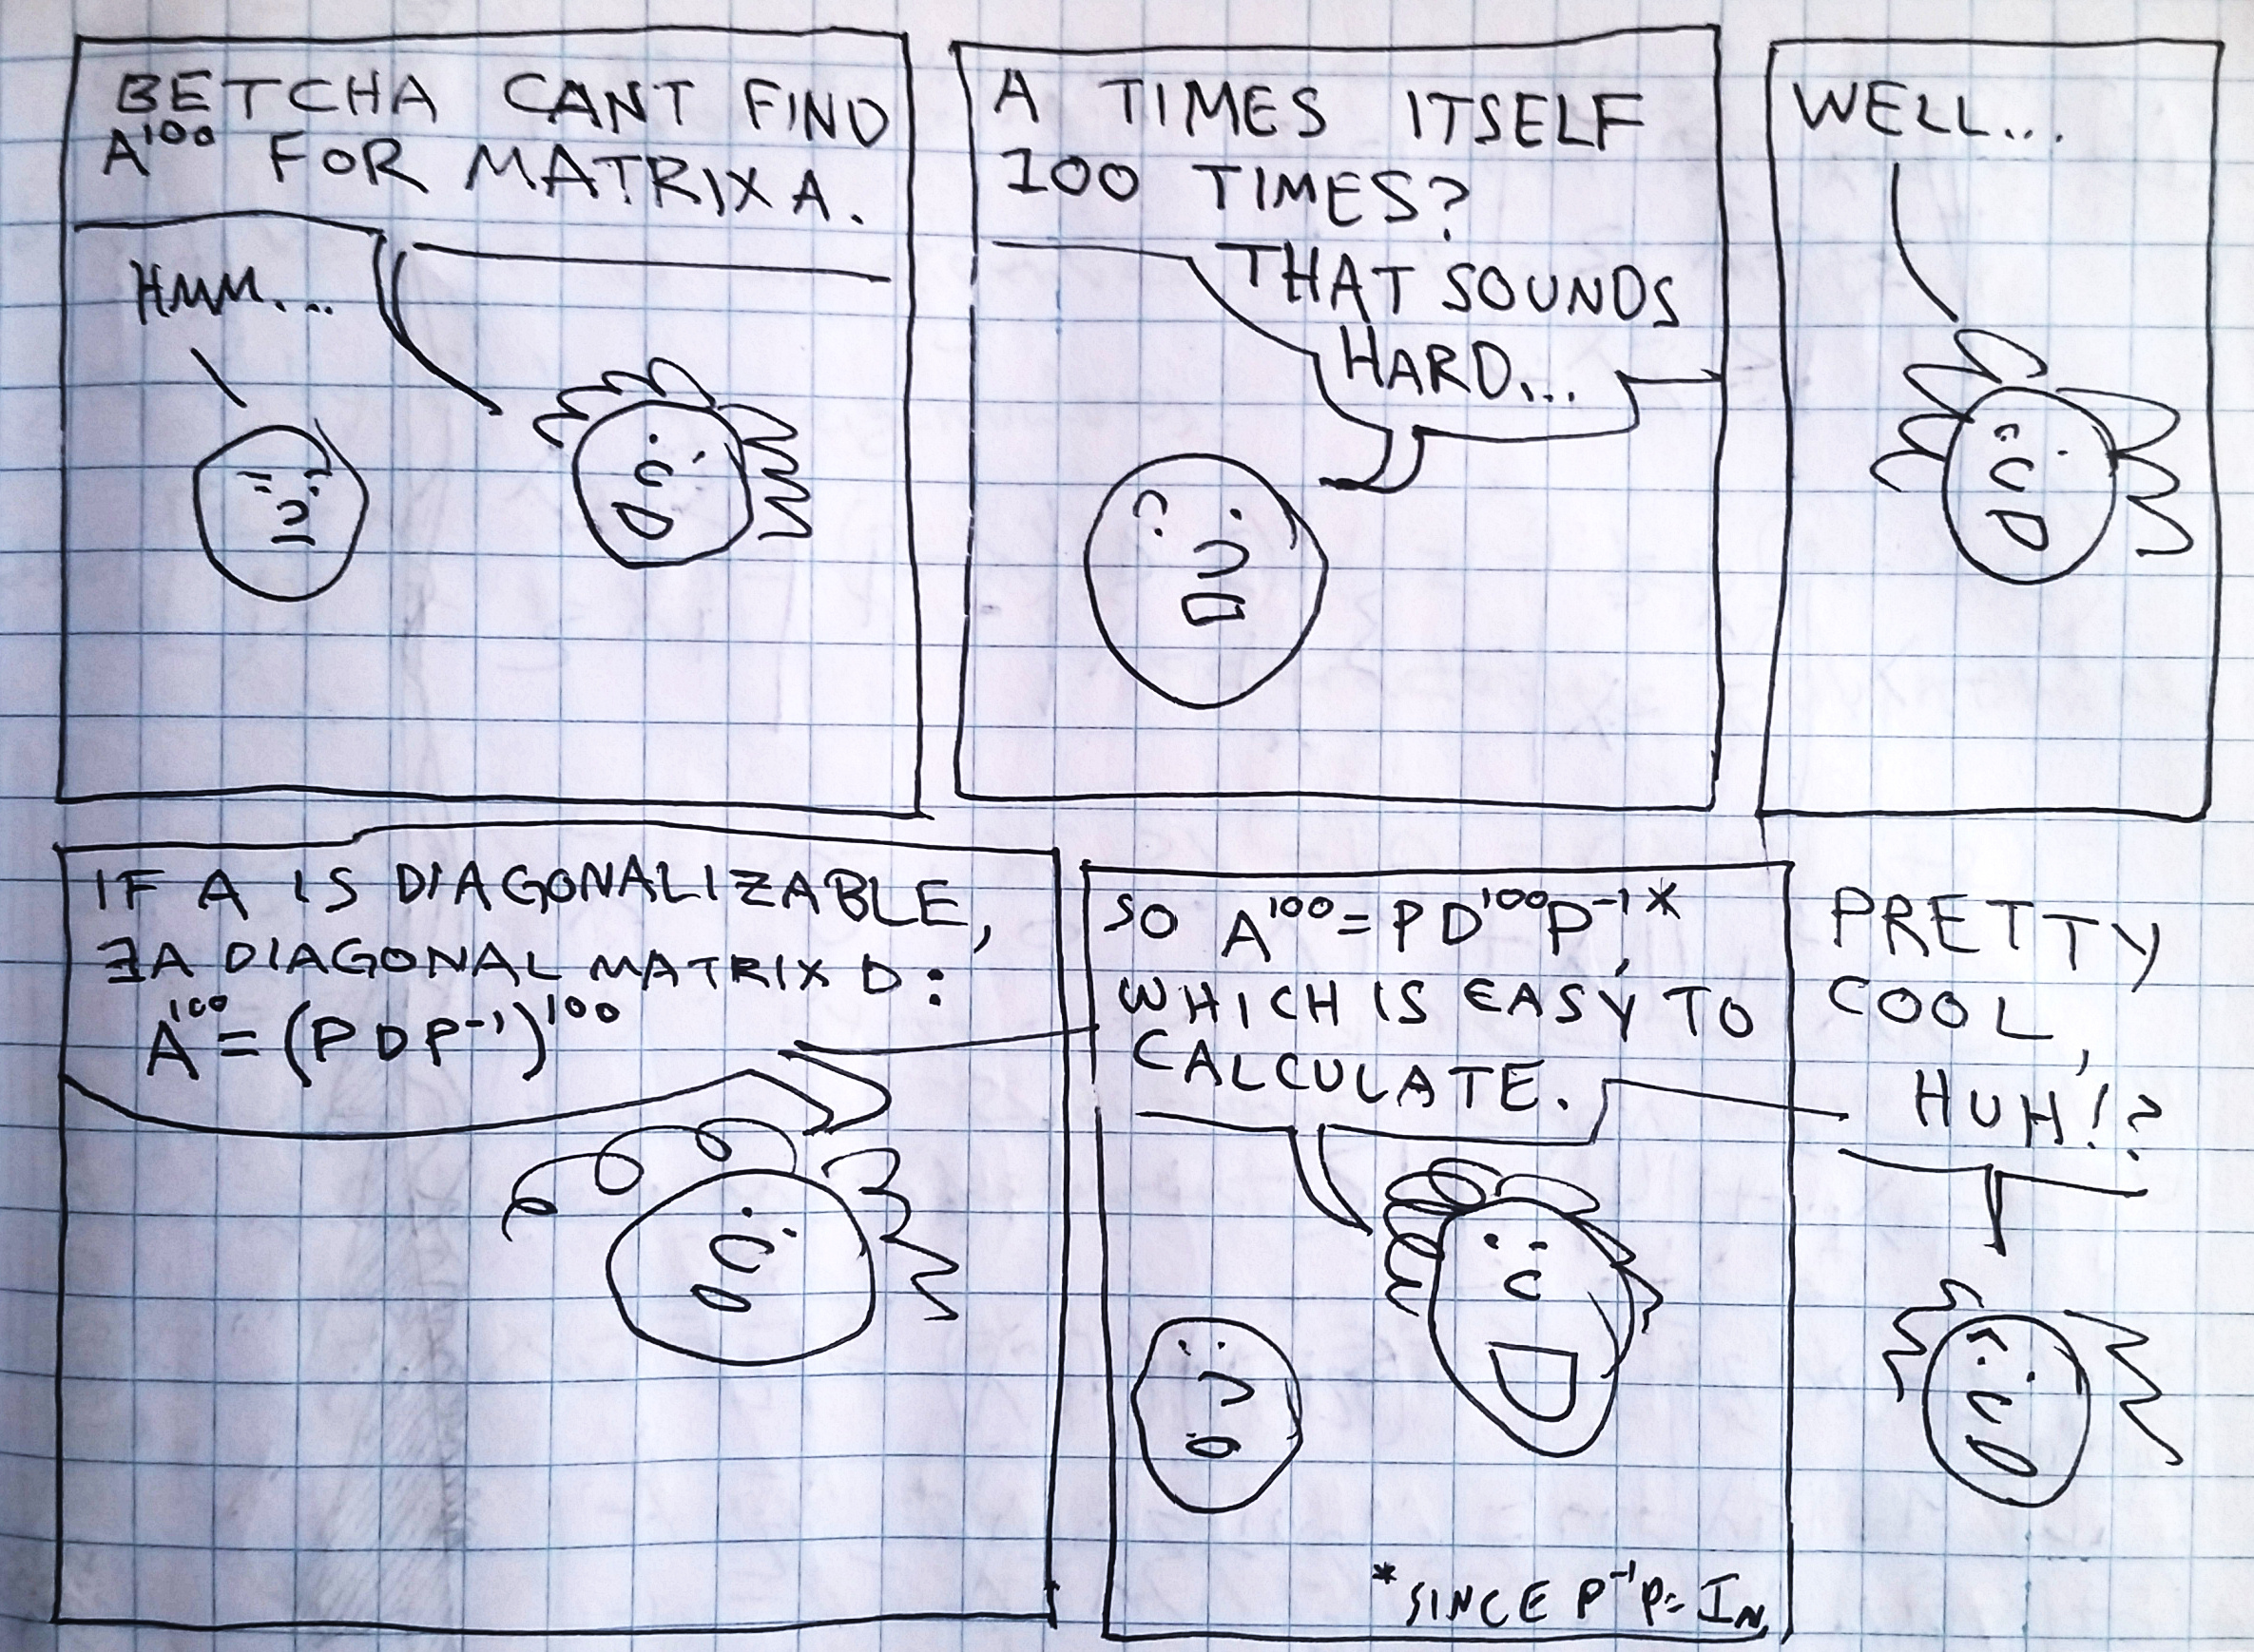 BETCHA CANT FIND
A¹⁰⁰ FOR MATRIX A.
HMM...
A TIMES ITSELF
100 TIMES?
THAT SOUNDS
HARD...
WELL...
IF A IS DIAGONALIZABLE,
∃A DIAGONAL MATRIX D:
A¹⁰⁰=(PDP⁻¹)¹⁰⁰
SO A¹⁰⁰=PD¹⁰⁰P⁻¹*,
WHICH IS EASY TO
CALCULATE.
*SINCE P⁻¹P=Iₙ
PRETTY
COOL,
HUH!?